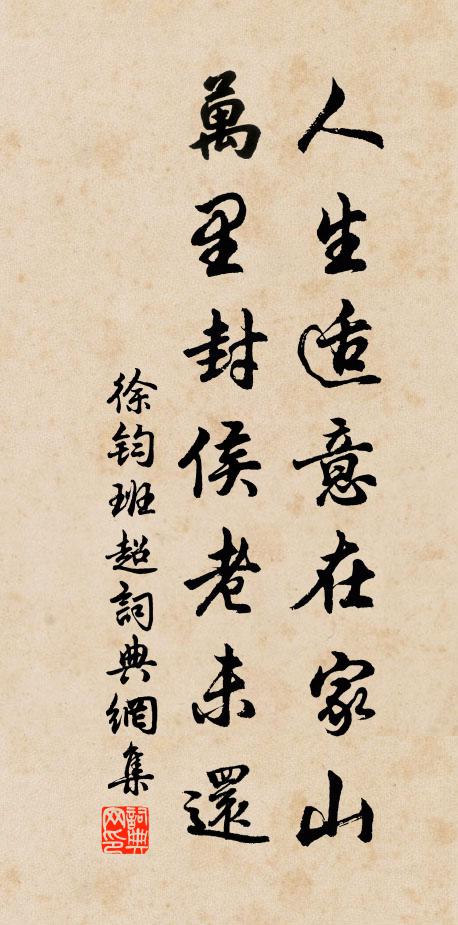 人生适意在家山
萬里封侯老未還
徐鈞班超詞典網集
詞典网印